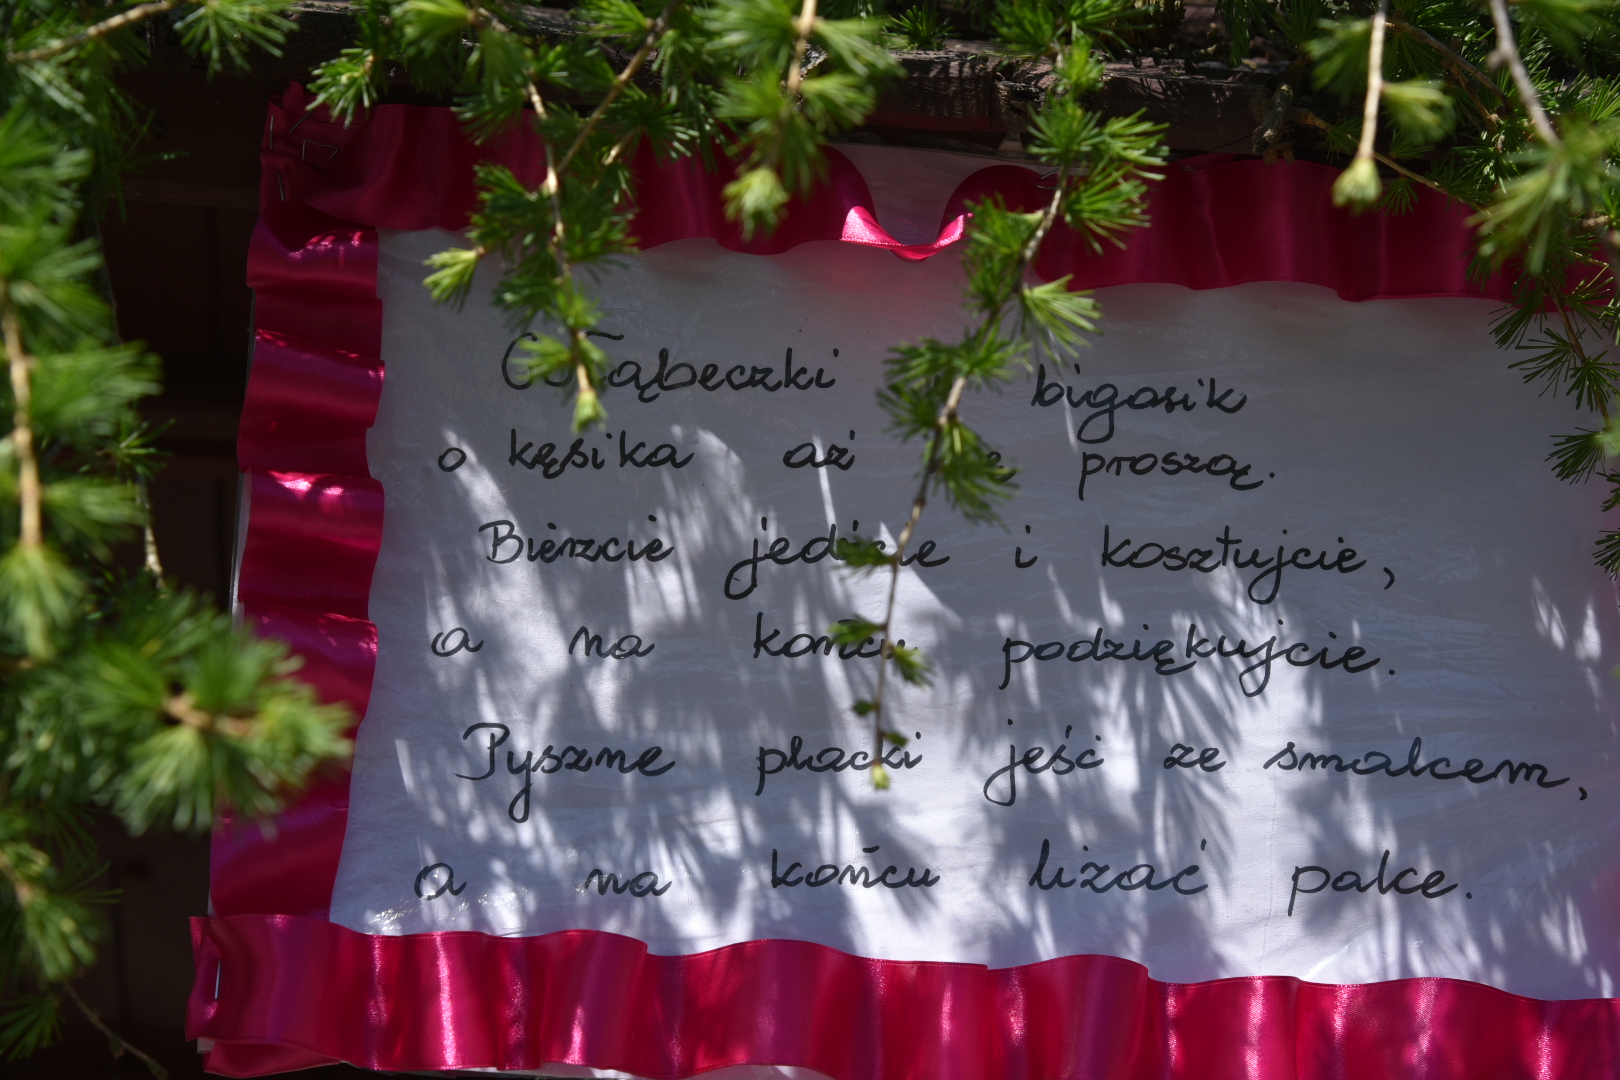 Gołąbeczki bigosik
o kęsika aż proszą.
Bierzcie jedzcie i kosztujcie,
a na końcu podziękujcie.
Pyszne placki jeść ze smalcem,
a na końcu lizać palce.